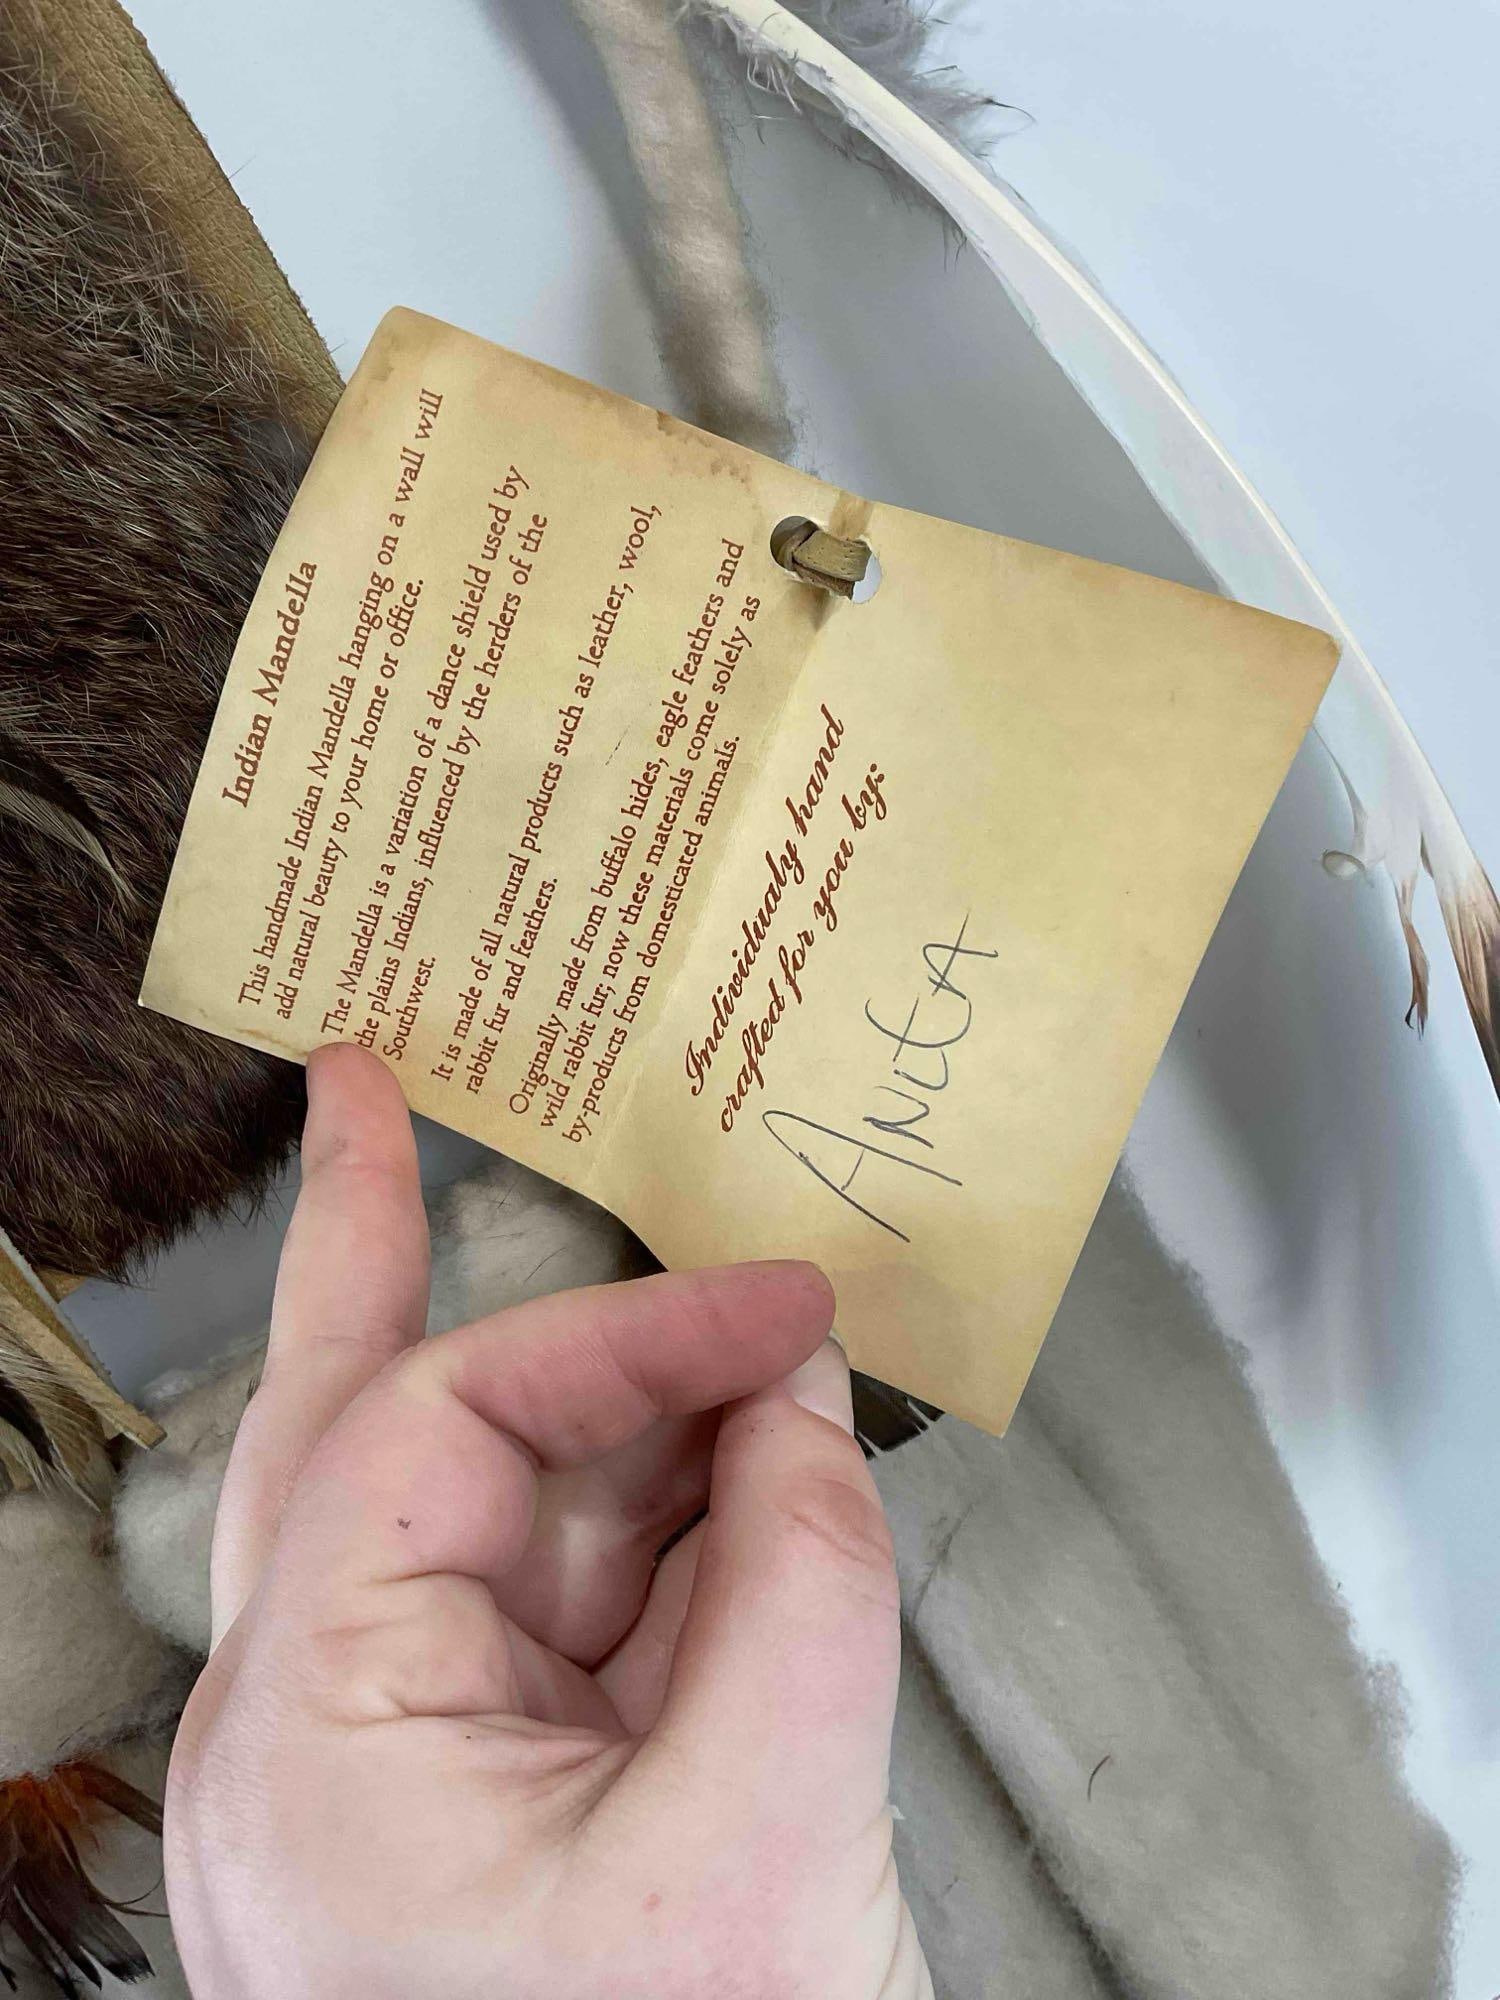 Indian Mandella
This handmade Indian Mandella hanging on a wall will
add natural beauty to your home or office.
The Mandella is a variation of a dance shield used by
the plains Indians, influenced by the herders of the
Southwest.
It is made of all natural products such as leather, wool,
rabbit fur and feathers.
Originally made from buffalo hides, eagle feathers and
wild rabbit fur; now these materials come solely as
by-products from domesticated animals.
Individualy hand
crafted for you by: